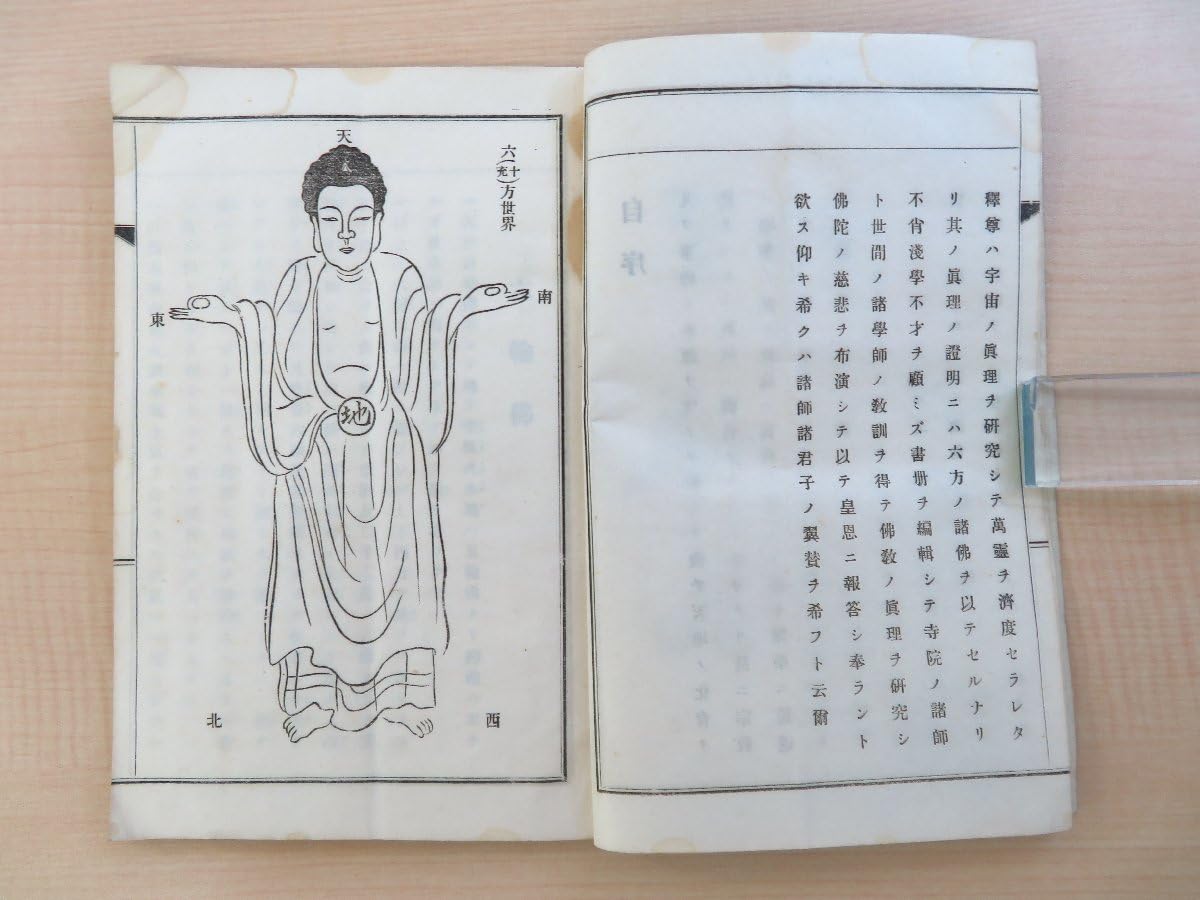 釋尊ハ宇宙ノ眞理ヲ硏究シテ萬靈ヲ濟度セラレタ
リ其ノ眞理ノ證明ニハ六方ノ諸佛ヲ以テセルナリ
不肖淺學不才ヲ顧ミズ書册ヲ編輯シテ寺院ノ諸師
ト世間ノ諸學師ノ敎訓ヲ得テ佛敎ノ眞理ヲ硏究シ
佛陀ノ慈悲ヲ布演シテ以テ皇恩ニ報答シ奉ラント
欲ス仰キ希クハ諸師諸君子ノ翼賛ヲ希フト云爾
自序
六(十充)方世界
天
南
東
地
西
北